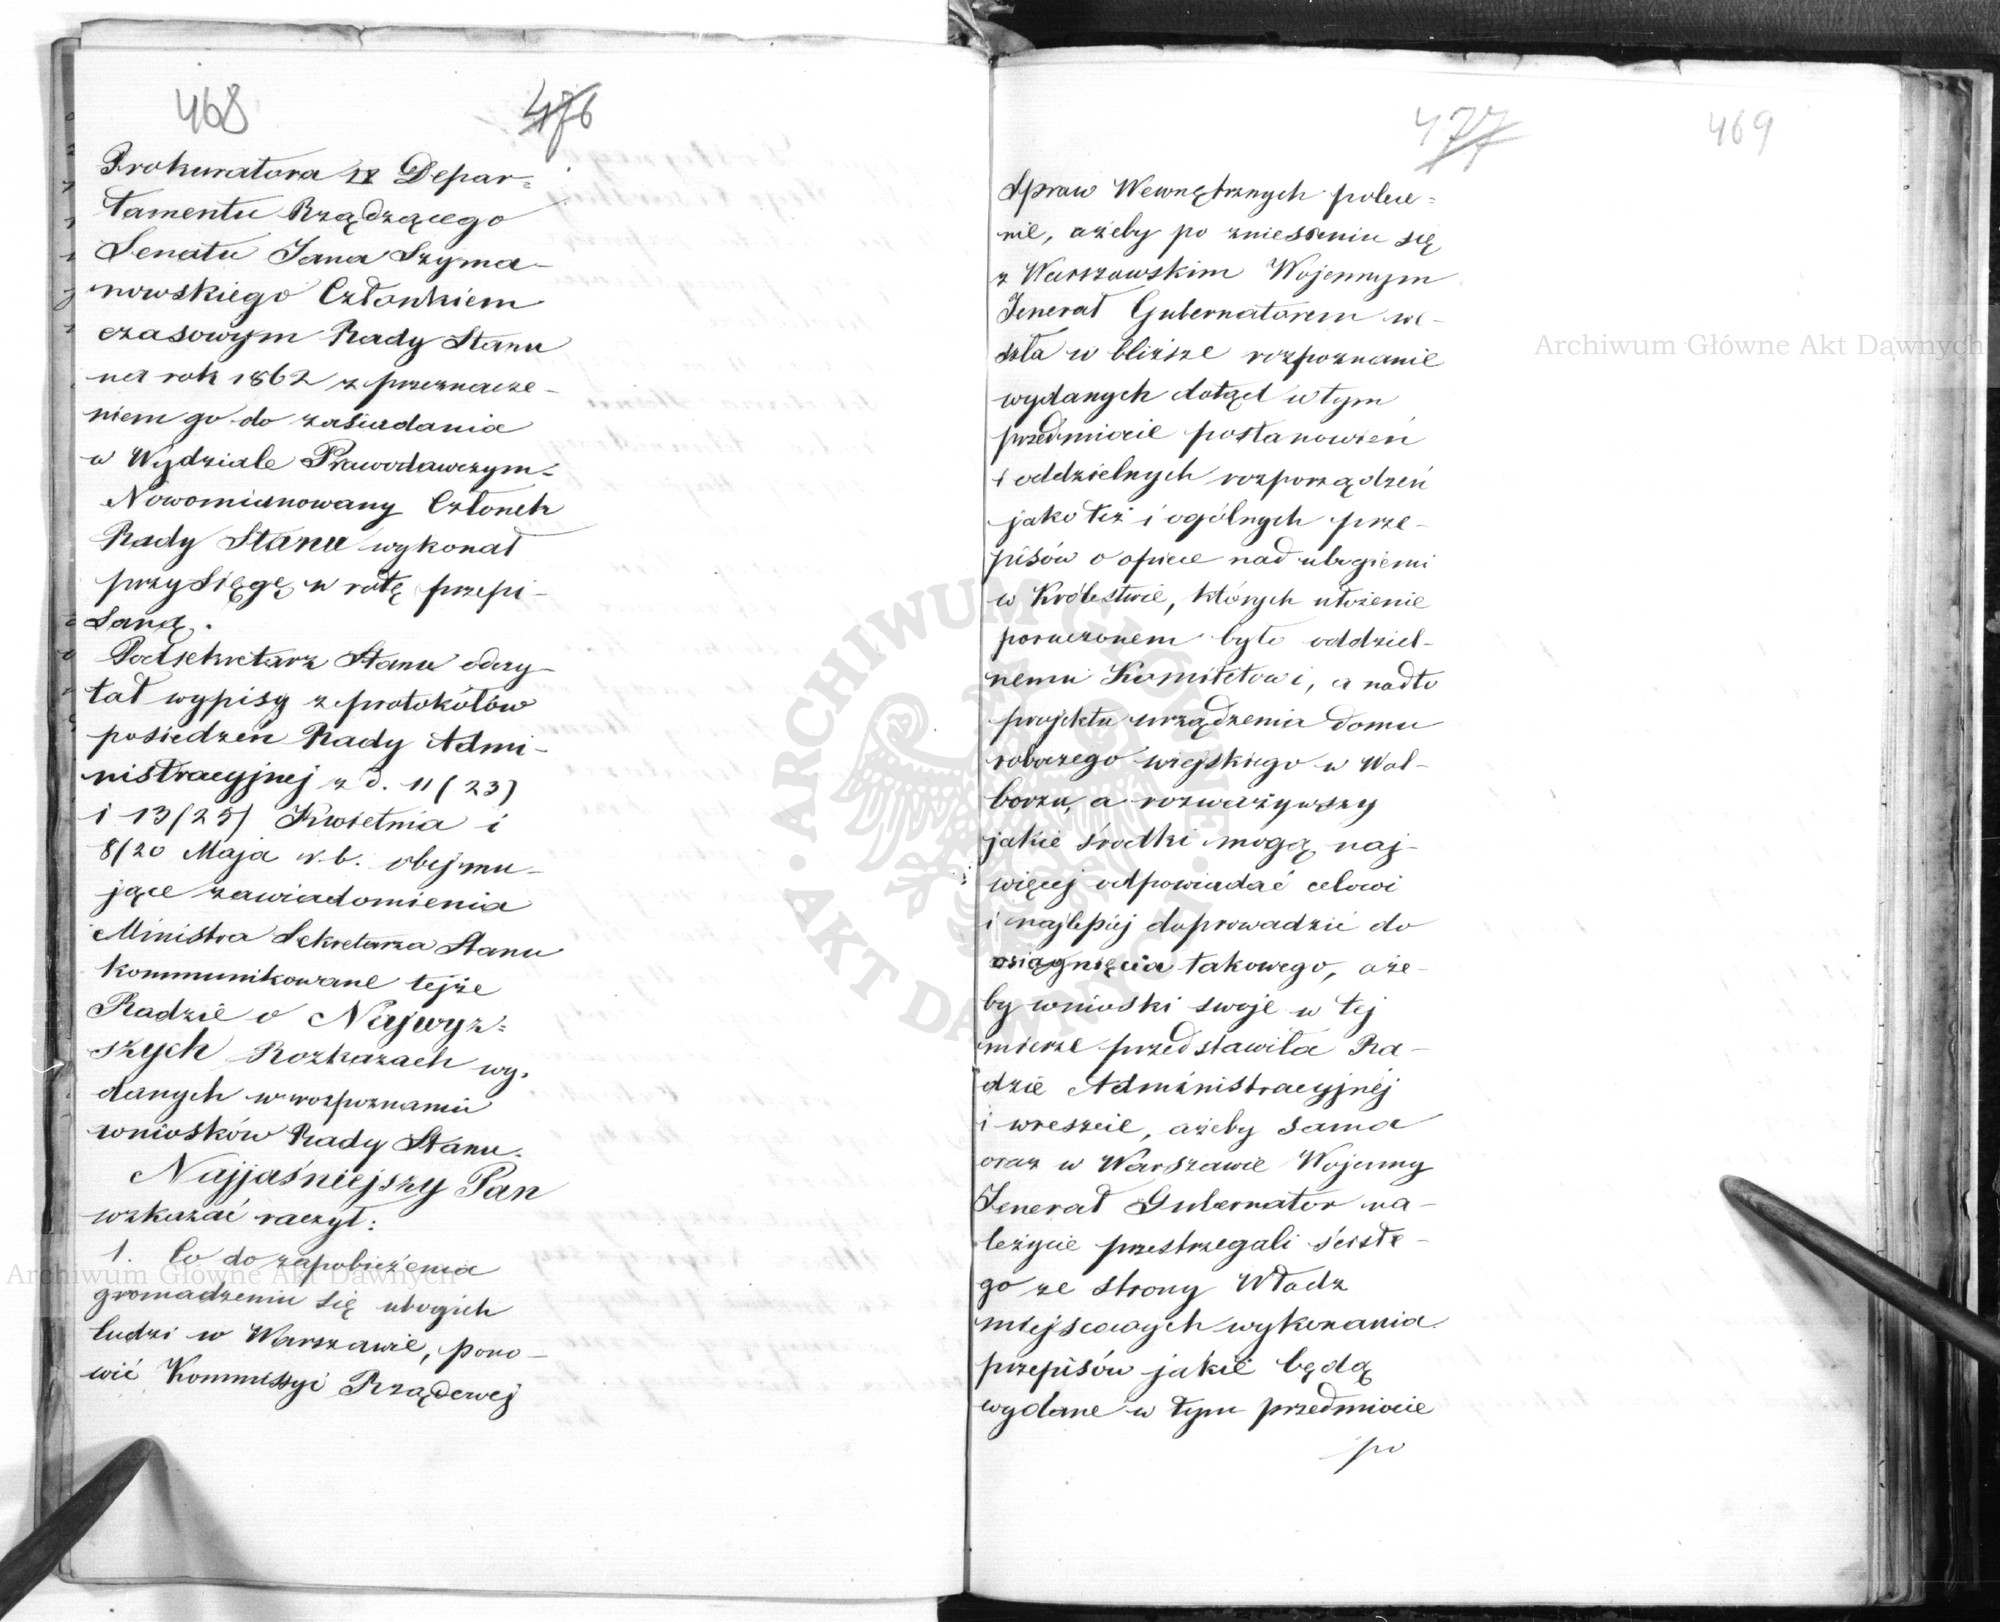 468 476
Prokuratora IX Depar-
tamentu Rządzącego
Senatu Jana Szyma-
nowskiego Członkiem
czasowym Rady Stanu
na rok 1862 z przeznacze-
niem go do zasiadania
w Wydziale Prawodawczym.
Nowomianowany Członek
Rady Stanu wykonał
przysięgę w rotę przepi-
saną.
Podsekretarz Stanu odczy-
tał wypisy z protokółów
posiedzeń Rady Admi-
nistracyjnej z d. 11/23)
i 13/25/ Kwietnia i
8/20 Maja r.b. obejmu-
jące zawiadomienia
Ministra Sekretarza Stanu
kommunikowane tejże
Radzie o Najwyż-
szych Rozkazach wy-
danych w rozpoznaniu
wniosków Rady Stanu.
Najjaśniejszy Pan
wskazać raczył:
1. Co do zapobieżenia
gromadzeniu się ubogich
ludzi w Warszawie, pono-
wić Kommissyi Rządowej
477 469
Spraw Wewnętrznych polece-
nie, ażeby po zniesieniu się
z Warszawskim Wojennym
Jenerał Gubernatorem we-
szła w bliższe rozpoznanie
wydanych dotąd w tym
przedmiocie postanowień
i oddzielnych rozporządzeń
jako też i ogólnych prze-
pisów o opiece nad ubogiemi
w Królestwie, których ułożenie
poruczonem było oddziel-
nemu Komitetowi, a nadto
projektu urządzenia domu
roboczego wiejskiego w Wol-
borzu, a rozważywszy
jakie środki mogą naj-
więcej odpowiadać celowi
i najlepiej doprowadzić do
osiągnięcia takowego, aże-
by wnioski swoje w tej
mierze przedstawiła Ra-
dzie Administracyjnej
i wreszcie, ażeby sama
oraz w Warszawie Wojenny
Jenerał Gubernator na-
leżycie przestrzegali ścisłe-
go ze strony Władz
miejscowych wykonania
przepisów jakie będą
wydane w tym przedmiocie
po
Archiwum Główne Akt Dawnych
Archiwum Główne Akt Dawnych
ARCHIWUM GŁÓWNE · AKT DAWNYCH ·